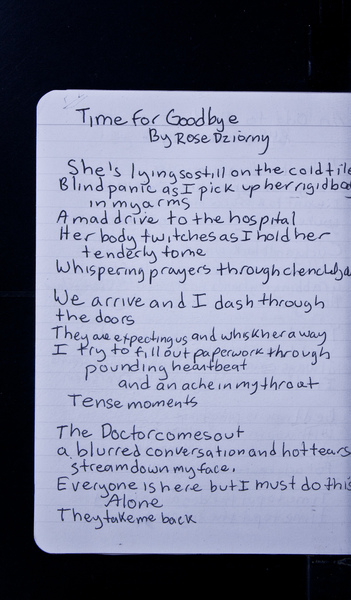 Time for Goodbye
By Rose Dziorny
She's lying so still on the cold tile
Blind panic as I pick up her rigid bod
in my arms
A mad drive to the hospital
Her body twitches as I hold her
tenderly to me
Whispering prayers through clenched
We arrive and I dash through
the doors
They are expecting us and whisk her away
I try to fill out paperwork through
pounding heartbeat
and an ache in my throat
Tense moments
The Doctor comes out
a blurred conversation and hot tears
stream down my face.
Everyone is here but I must do this
Alone
They take me back